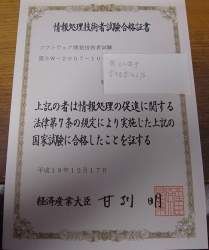 情報処理技術者試験合格証書
ソフトウェア開発技術者試験
第SW-2007-10
上記の者は情報処理の促進に関する
法律第7条の規定により実施した上記の
国家試験に合格したことを証する
平成19年10月17日
経済産業大臣 甘利 明